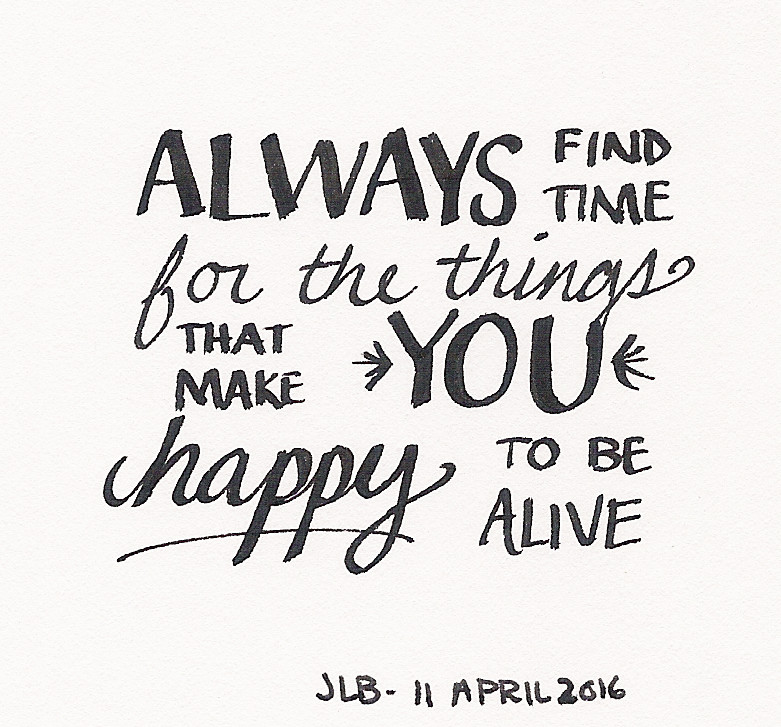 ALWAYS FIND TIME
for the things
THAT MAKE YOU
happy TO BE ALIVE
JLB - 11 APRIL 2016